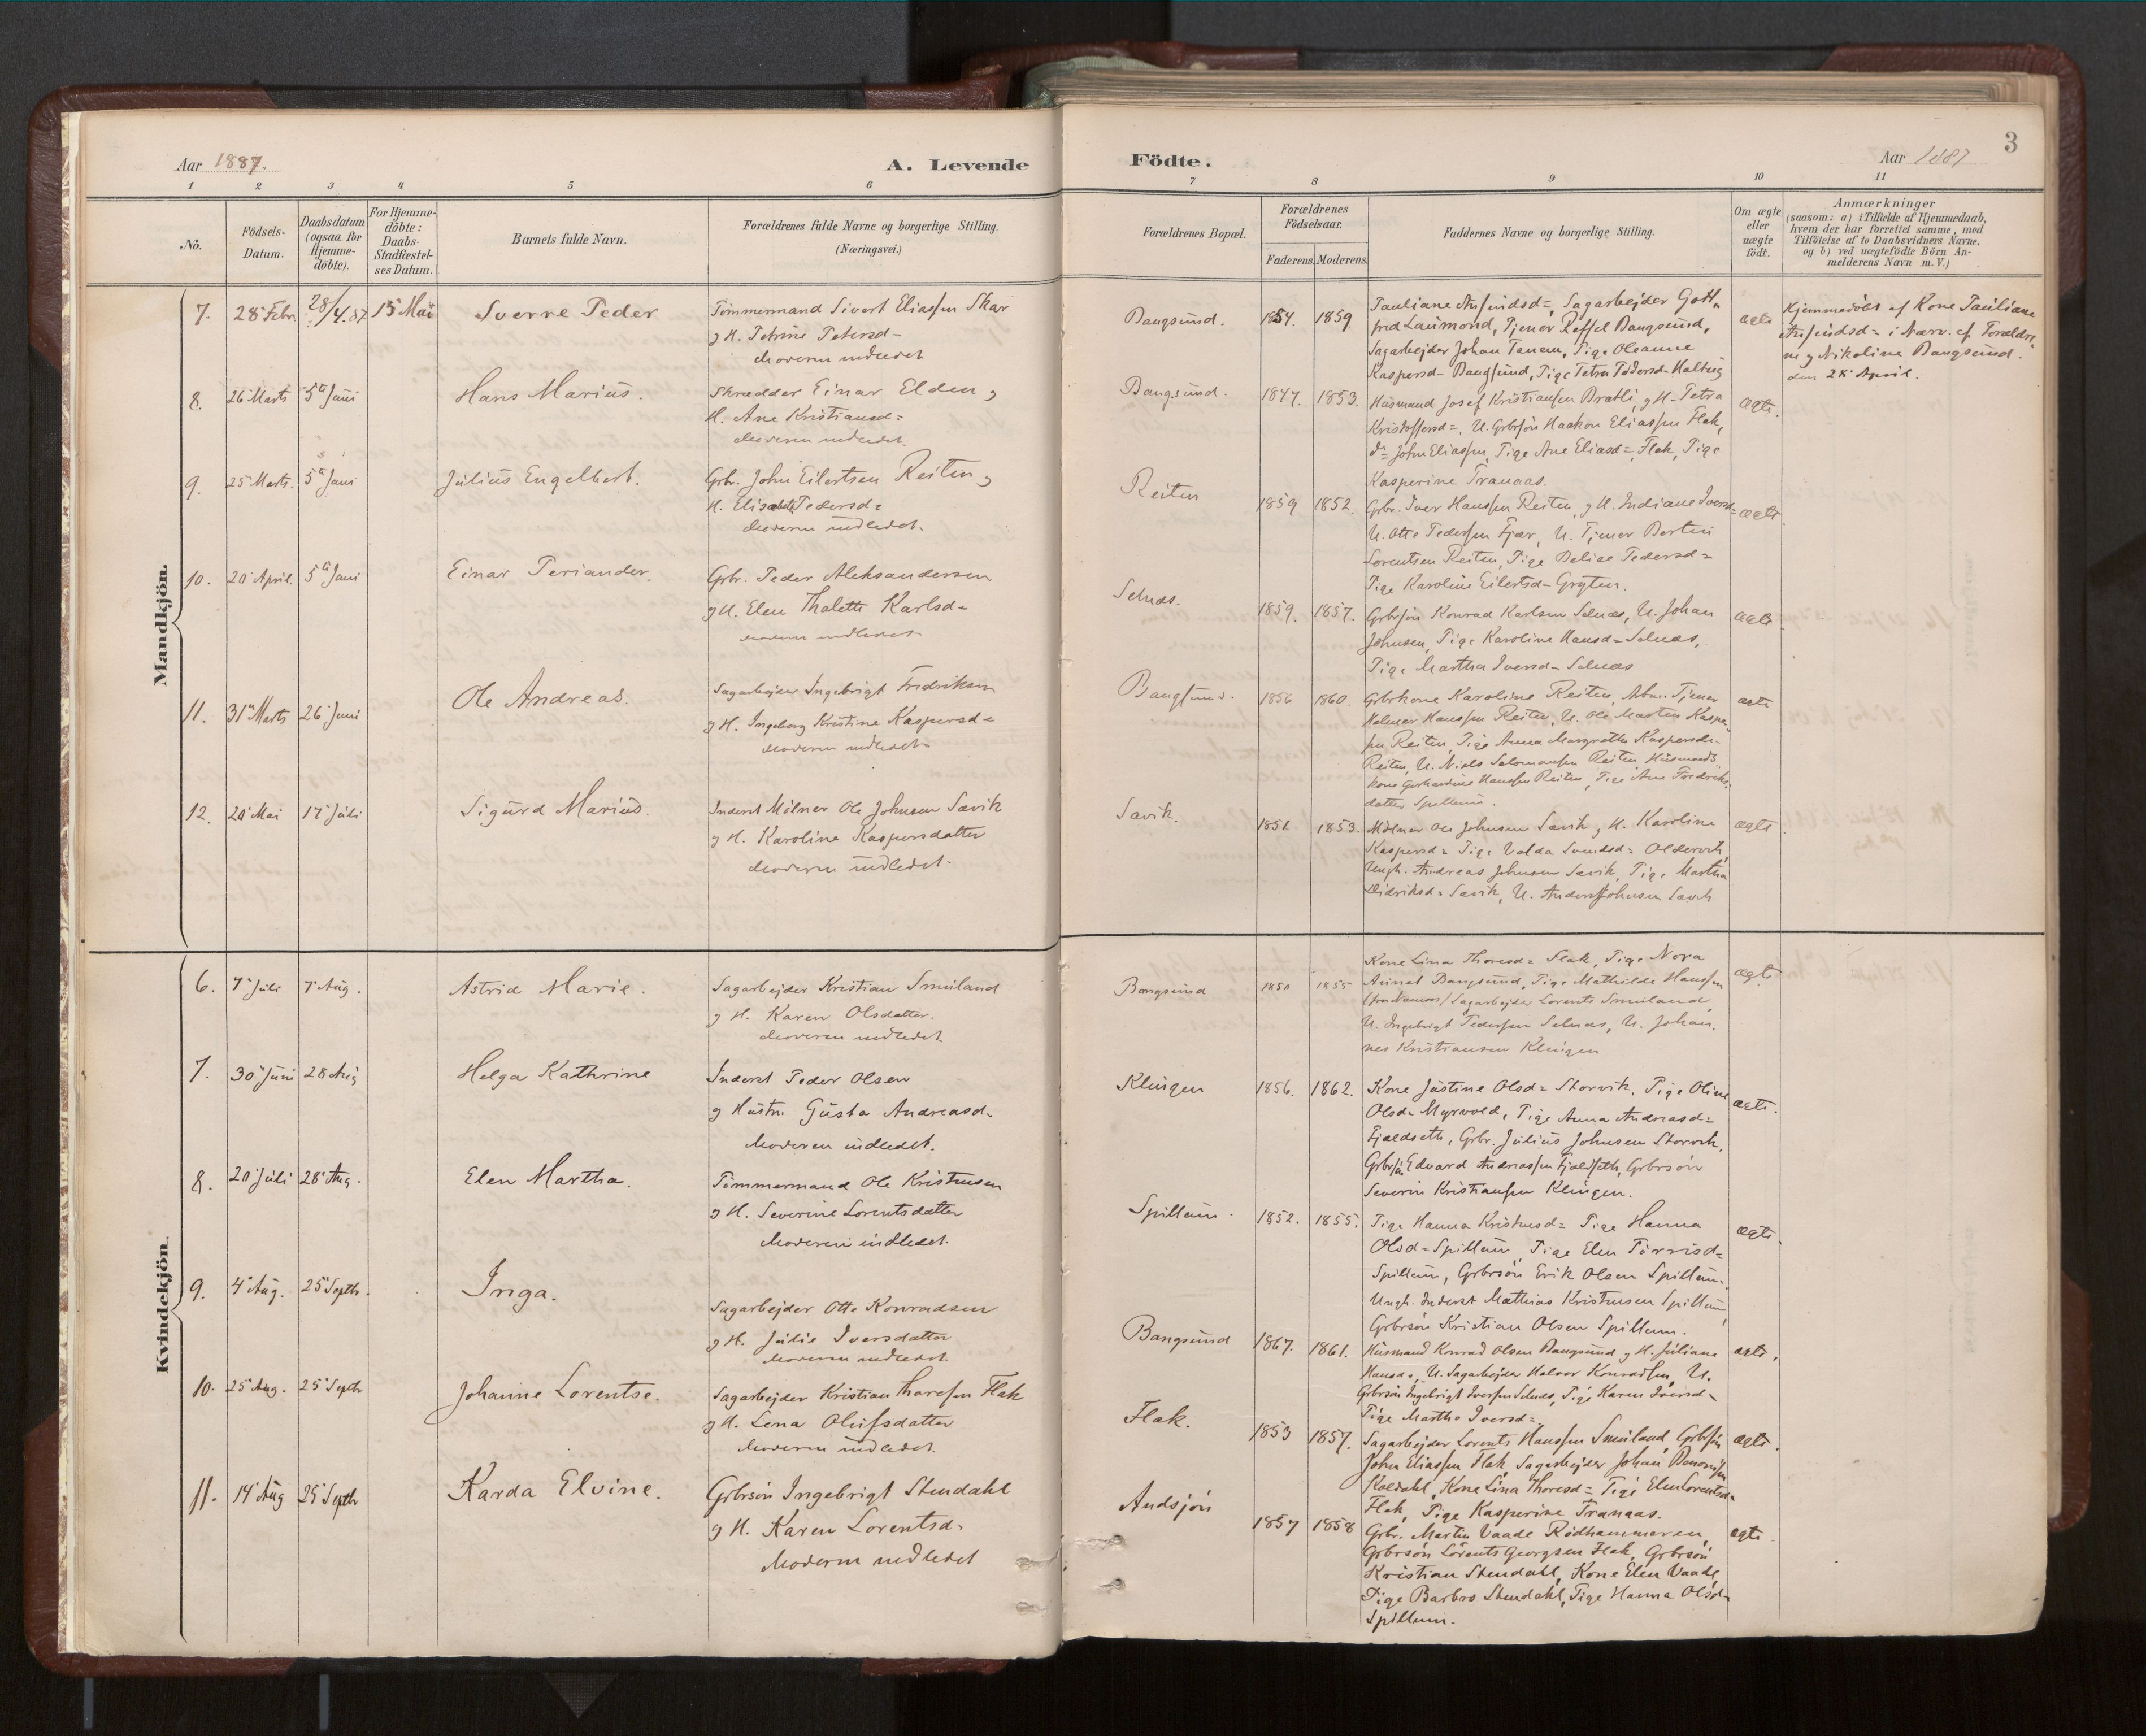 3
Aar 1887.
A. Levende
Födte.
Aar 1887
1 2 3 4 5 6 7 8 9 10 11
No.
Födsels-
Datum.
Daabsdatum
(ogsaa for
Hjemme-
döbte).
For Hjemme-
döbte:
Daabs-
Stadfæstel-
ses Datum.
Barnets fulde Navn.
Forældrenes fulde Navne og borgerlige Stilling.
(Næringsvei.)
Forældrenes Bopæl.
Forældrenes
Födselsaar.
Faderens. Moderens.
Faddernes Navne og borgerlige Stilling.
Om ægte
eller
uægte
födt.
Anmærkninger
(saasom: a) i Tilfælde af Hjemmedaab,
hvem der har forrettet samme, med
Tilföielse af to Daabsvidners Navne.
og b) ved uægtefödte Börn An-
melderens Navn m. V.)
Mandkjön.
7. 28 Febr 28/4.87 15 Mai Sverre Peder
Tömmermand Sivert Eliassen Skar
g H. Petrine Petersd-
Moderen indledet
Bangsund. 1854. 1859
Pauliane Arnsindsd=, Sagarbejder Gott-
fred Laumond, Tjener Bangsund,
Sagarbejder Johan Tanem, Pige Oleanne
Kaspersd- Bangsund, Pige Petra Pedersd-
ægte
Hjemmedöbt af Kone Pauliane
i Nærv. af Forældre
ne g Nikoline Bangsund.
den 28 April.
8. 26 Marts 5te Juni Hans Marius.
Skrædder Einar Elden g
H. Ane Kristiansd=
Moderen indledet.
Bangsund. 1847. 1853.
Husmand Josef Kristiansen Bratli g H. Petra
Kristoffersd=, U. Grbrsön Haakon Eliassen Flak,
do John Eliassen, Pige Ane Eliasd= Flak, Pige
Kasperine Tranaas.
ægte.
9. 25 Marts. 5te Juni Julius Engelbert.
Grbr. John Eilertsen Reiten g
H. Elisabeth Pedersd=
Moderen indledet.
Reiten 1859 1852.
Grbr. Iver Hanssen Reiten, g H. Indiane Iversd=
U. Otto Pedersen Fjær, U. Tjener Bertin
Lorentsen Reiten, Pige Pedersd=
Pige Karoline Eilertsd- Gryten.
ægte.
10. 20 April. 5te Juni Einar Periander.
Grbr. Peder Aleksandersen
g H. Elen Thalette Karlsd=
Moderen indledet
Selnæs. 1859. 1857.
Grbrsön Konrad Karlsen Selnæs, U. Johan
Johnsen, Pige Karoline Hansd= Selnæs,
Pige Martha Iversd= Selnæs
ægte
11. 31 Marts 26 Juni Ole Andreas.
Sagarbejder Ingebrigt Fredriksen
g H. Ingeborg Kristine Kaspersd=
Moderen indledet
Bangsund. 1856 1860.
Grbrkone Karoline Reiten, Tjener
Halvor Hanssen Reiten, U. Ole Martin Kasper-
sen Reiten, Pige Anna Margrethe Kaspersd-
Reiten, U. Niels Salomonsen Reiten, Husmands-
kone Hanssen Reiten, Pige Ane Fredriks-
datter Spillum.
ægte
12. 20 Mai 17 Juli Sigurd Marius.
Inderst Mölner Ole Johnsen Savik
g H. Karoline Kaspersdatter
Moderen indledet
Savik. 1851. 1853.
Mölner Ole Johnsen Savik g H. Karoline
Kaspersd= Pige Valda Svendsd=
Ungk. Andreas Johnsen Savik, Pige Martha
Didriksd= Savik, U. Anders Johnsen Savik
ægte
Kvindekjön.
6. 7 Juli 7 Aug. Astrid Marie.
Sagarbejder Kristian Smuland
g H. Karen Olsdatter.
Moderen indledet
Bangsund 1850 1855
Kone Lina Thoresd= Flak, Pige Nora
Bangsund, Pige Mathilde Hanssen
(fra Namsos) Sagarbejder Lorents Smuland,
U. Ingebrigt Pedersen Selnæs, U. Johan-
nes Kristiansen Klingen
ægte
7. 30 Juni 28 Aug Helga Kathrine
Inderst Peder Olsen
g Hustru Gusta Andreasd-
Moderen indledet.
Klingen 1856. 1862.
Kone Justine Olsd= Storvik, Pige Oline
Olsd= Myrvold, Pige Anna Andreasd=
Fjeldseth, Grbr. Julius Johnsen Storvik,
Grbrsön Edvard Andreassen Fjeldseth, Grbrsön
Severin Kristiansen Klingen.
ægte.
8. 20 Juli 28 Aug. Elen Martha.
Tömmermand Ole Kristensen
g H. Severine Lorentsdatter
Moderen indledet.
Spillum. 1852. 1855.
Pige Hanna Kristensd= Pige Hanna
Olsd= Spillum, Pige Elen Törrisd=
Spillum, Grbrsön Erik Olsen Spillum,
Ungk. Inderst Mathias Kristensen Spillum,
Grbrsön Kristian Olsen Spillum.
ægte.
9. 4 Aug. 25 Septbr. Inga.
Sagarbejder Otto Konradsen
g H. Julie Iversdatter
Moderen indledet.
Bangsund 1867. 1861.
Husmand Konrad Olsen Bangsund g H. Juliane
Hansd=, U. Sagarbejder Halvor Konradsen, U.
Grbrsön Ingebrigt Iversen Selnæs, Pige Karen Iversd=
Pige Martha Iversd=
ægte,
10. 25 Aug. 25 Septbr Johanne Lorentse.
Sagarbejder Kristian Thoresen Flak
g H. Lena Olufsdatter
Moderen indledet.
Flak. 1853 1857.
Sagarbejder Lorents Hanssen Smuland, Grbrsön
John Eliassen Flak, Sagarbejder Johan
Koldahl, Kone Lina Thoresd= Pige Elen Lorentsd=
Flak, Pige Kasperine Tranaas.
ægte.
11. 14 Aug 25 Septbr Karda Elvine.
Grbrsön Ingebrigt Stendahl
g H. Karen Lorentsd-
Moderen indledet
Andsjön 1857 1858
Grbr. Martin Vaade Rödhammeren,
Grbrsön Lorents Georgsen Flak, Grbrsön
Kristian Stendahl, Kone Elen Vaade,
Pige Barbro Stendahl, Pige Hanna Olsd=
Spillum.
ægte.